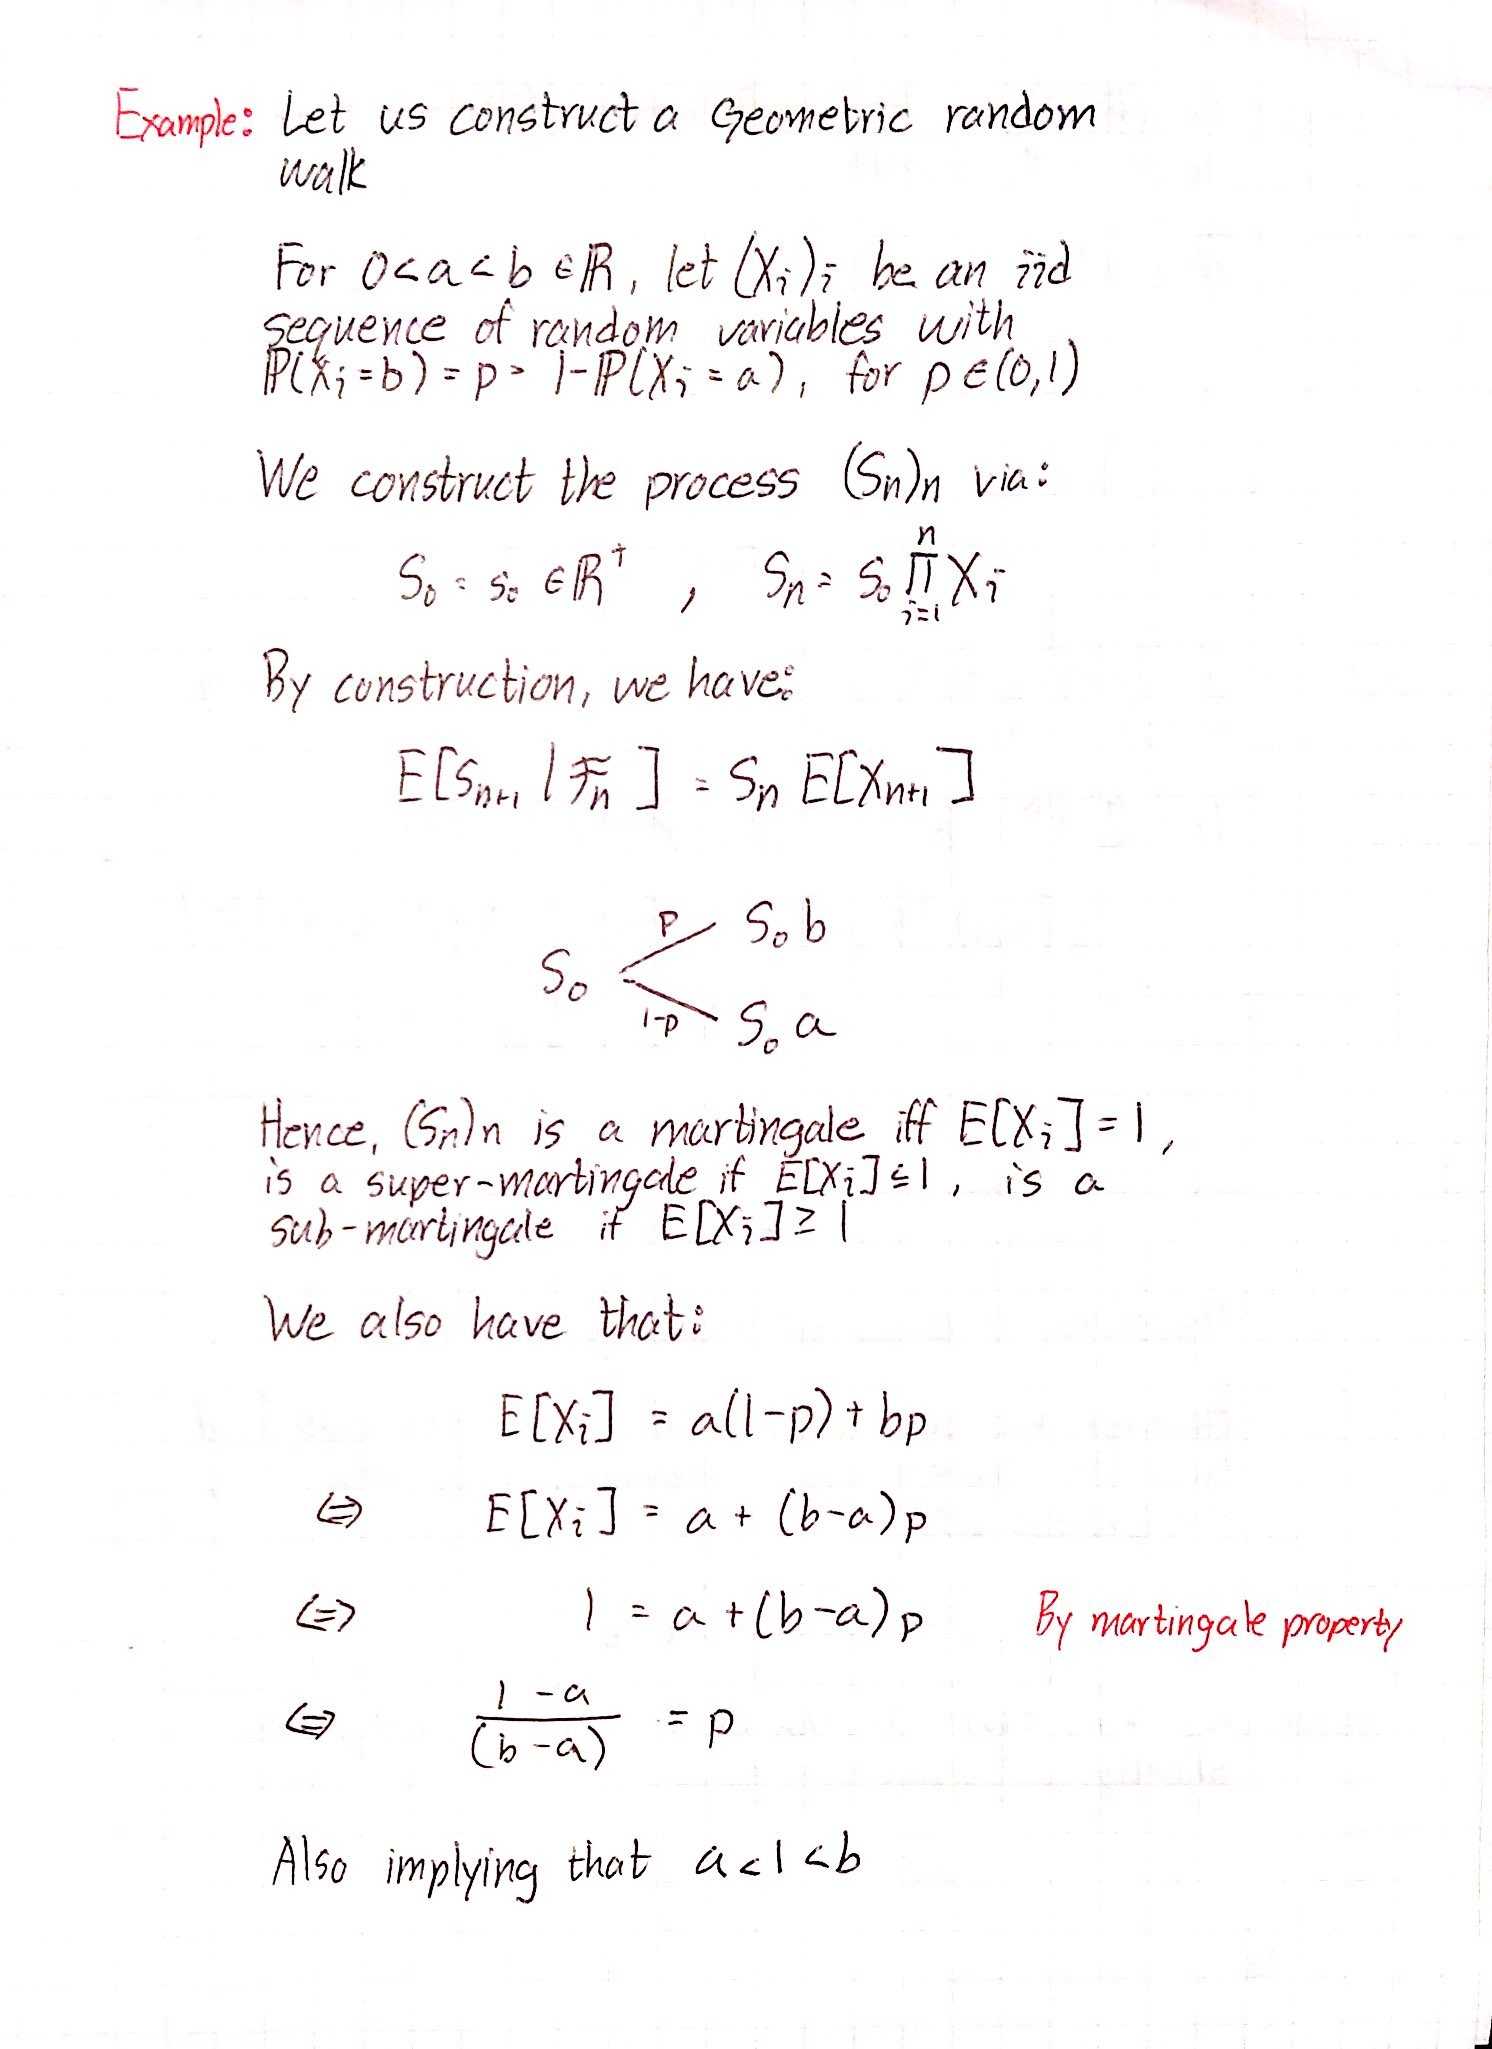 Example: Let us construct a Geometric random
walk
For 0<a<b ∈ ℝ, let (Xᵢ)ᵢ be an iid
sequence of random variables with
ℙ(Xᵢ=b) = p = 1-ℙ(Xᵢ=a), for p∈(0,1)
We construct the process (Sn)n via:
S₀ = s₀ ∈ ℝ⁺ , Sn = S₀ ∏ᵢ₌₁ⁿ Xᵢ
By construction, we have:
E[Sn+1 | ℱn] = Sn E[Xn+1]
p S₀b
S₀
1-p S₀a
Hence, (Sn)n is a martingale iff E[Xᵢ]=1,
is a super-martingale if E[Xᵢ]≤1, is a
sub-martingale if E[Xᵢ]≥1
We also have that:
E[Xᵢ] = a(1-p)+bp
⇔ E[Xᵢ] = a + (b-a)p
⇔ 1 = a+(b-a)p By martingale property
⇔ (1-a)/(b-a) = p
Also implying that a<1<b